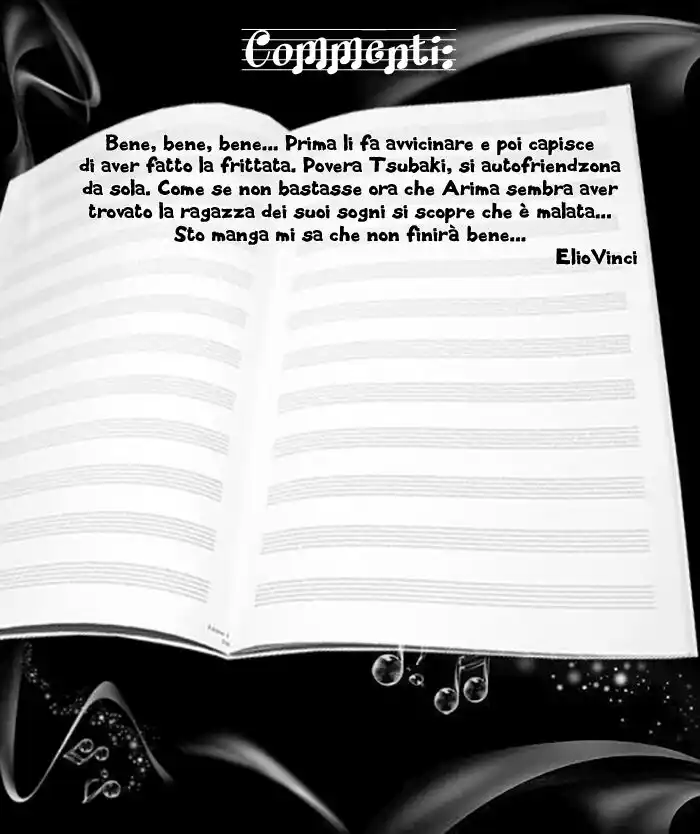 Commenti:
Bene, bene, bene... Prima li fa avvicinare e poi capisce
di aver fatto la frittata. Povera Tsubaki, si autofriendzona
da sola. Come se non bastasse ora che Arima sembra aver
trovato la ragazza dei suoi sogni si scopre che è malata...
Sto manga mi sa che non finirà bene...
ElioVinci